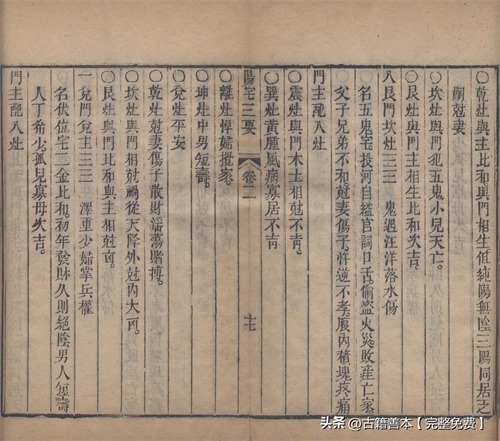 ○乾灶與主比和與門相生但純陽無陰三陽同居之
剛尅妻
○坎灶與門犯五鬼小兒夭亡。
○艮灶與門主相生比和大吉。
八艮門坎灶三三 鬼遇汪洋落水傷
名五鬼宅投河自縊官詞口舌偷盜火災敗產亡家
父子兄弟不和尅妻傷子忤逆不孝展內積塊疼痛
門主配八灶
○震灶與門木土相尅不吉。
○巽灶黃腫風病寡居不吉
陽宅三要
卷二
十七
○離灶悍婦攪家。
○坤灶中男短壽。
○兌灶平安
○乾灶尅妻傷子散財淫蕩賭博。
○坎灶與門相尅禍從天降外尅內大凶。
○艮灶與門比和與主相尅凶。
一兌門兌主三三 澤重少婦掌兵權
名伏位宅二金比和初年發財久則絕陰男人短壽
人丁希少孤兒寡母欠吉。
門主配八灶
头条 @古籍善本【完整免费】